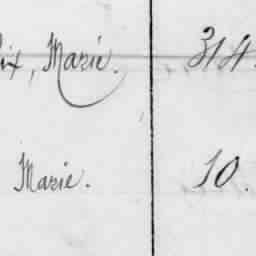 ix, Marie. 314.
Marie. 10.